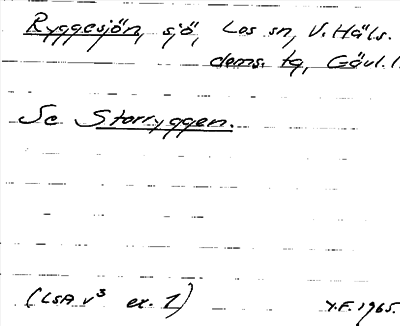 Ryggesjön, sjö, Los sn, V. Häls.
doms. tg, Gävl. l.
Se Storryggen.
(LSA v³ ex. 1)
Y.F. 1965.